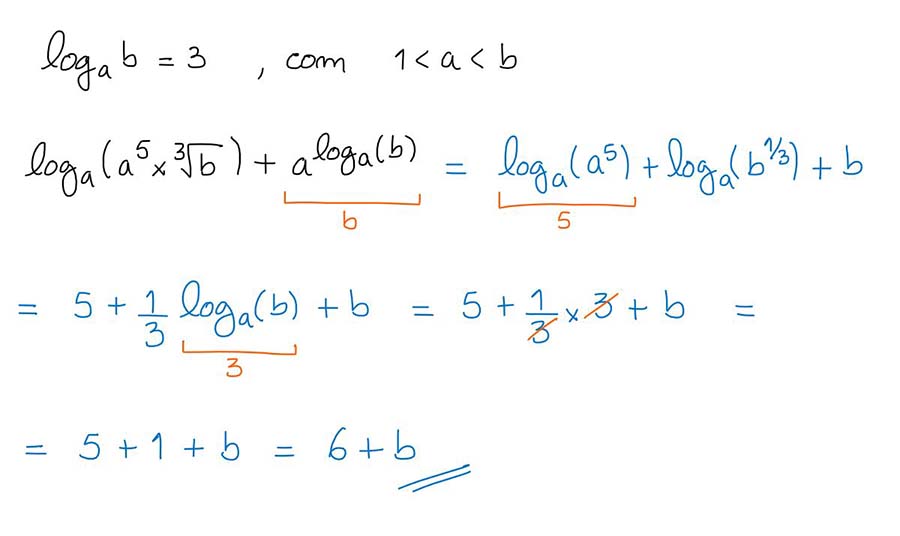 logₐ b = 3 , com 1 < a < b
logₐ(a⁵ × ∛b) + a^(logₐ(b)) = logₐ(a⁵) + logₐ(b^(1/3)) + b
b 5
= 5 + 1/3 logₐ(b) + b = 5 + 1/3 × 3 + b =
3
= 5 + 1 + b = 6 + b